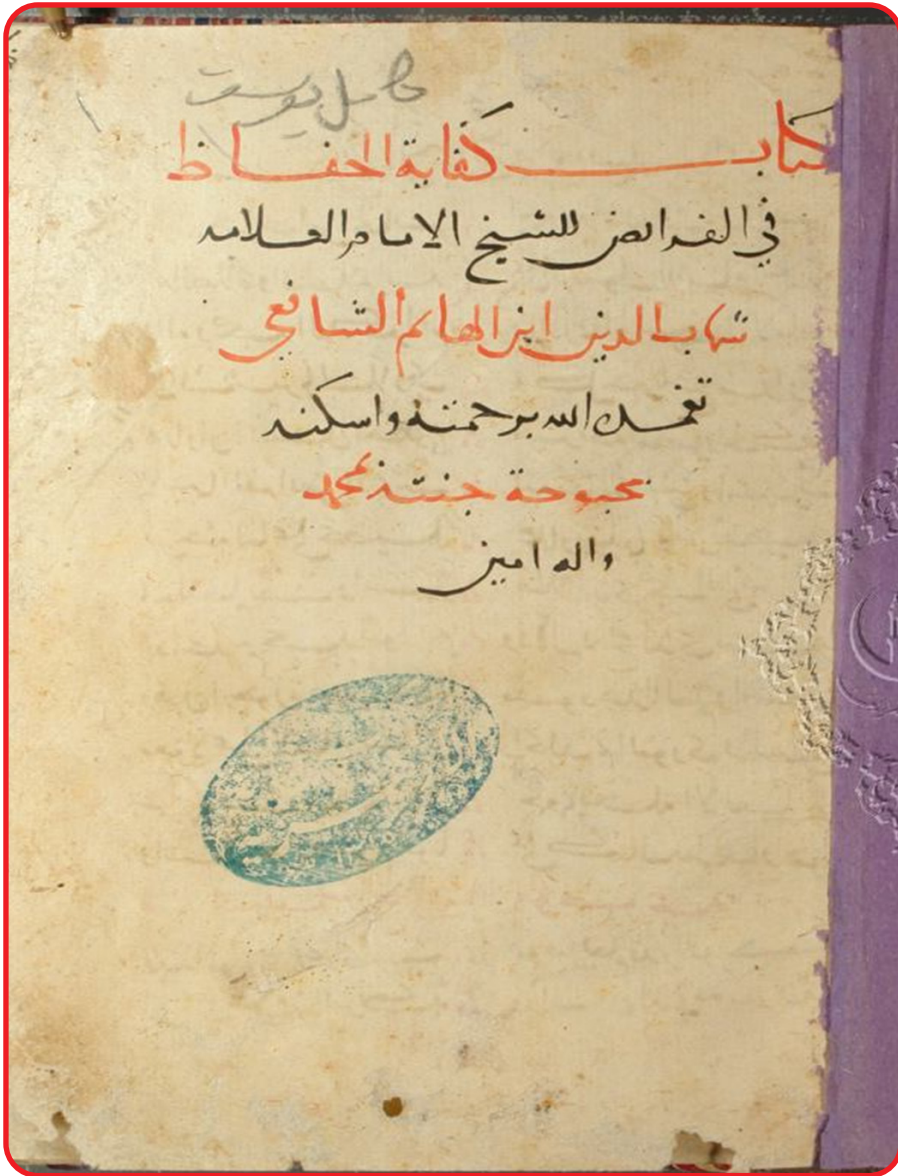 كتاب كفاية الحفاظ
في الفرائض للشيخ الامام العلامه
شهاب الدين ابن الهائم الشافعي
تغمده الله برحمته واسكنه
بحبوحة جنته بمحمد
واله امين